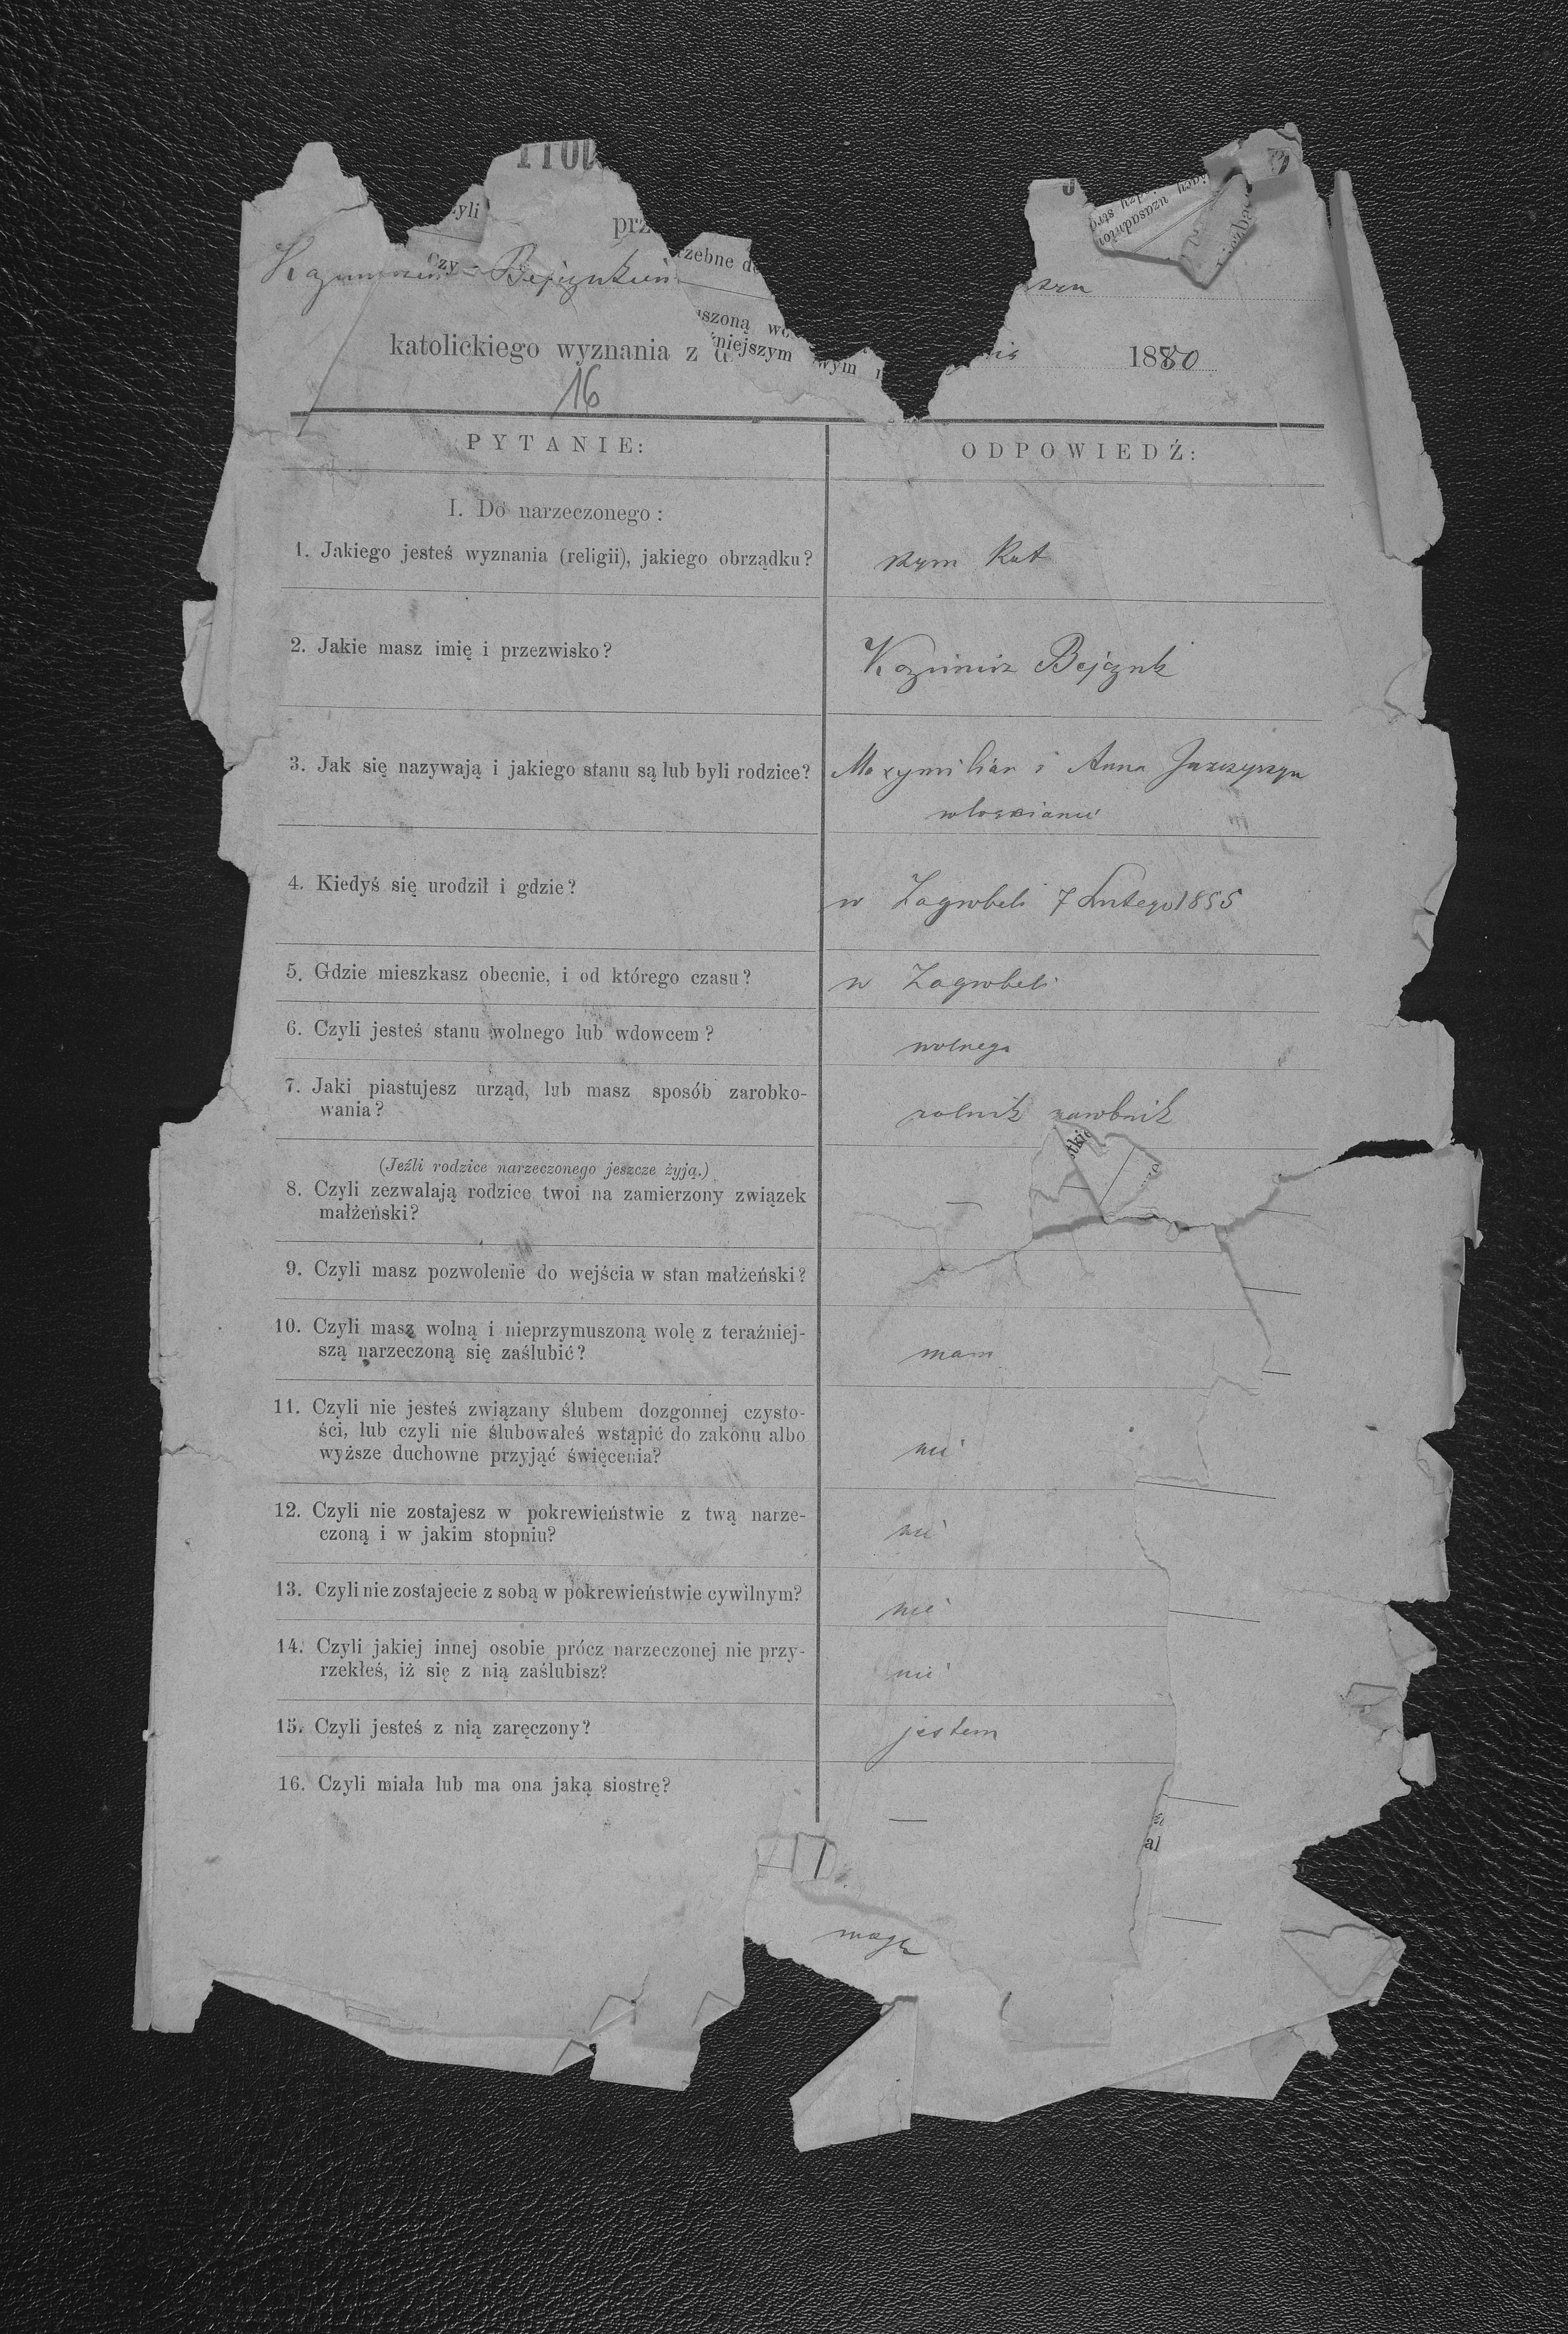 prz
Kazimierzem Bejczukiem
katolickiego wyznania z d 1880
16
PYTANIE: ODPOWIEDŹ:
I. Do narzeczonego:
1. Jakiego jesteś wyznania (religii), jakiego obrządku? Rzym Kat
2. Jakie masz imię i przezwisko? Kazimirz Bejczuk
3. Jak się nazywają i jakiego stanu są lub byli rodzice? Maxymilian i Anna
włoscianie
4. Kiedyś się urodził i gdzie? w Zagrobeli 7 Lutego 1855
5. Gdzie mieszkasz obecnie, i od którego czasu? w Zagrobeli
6. Czyli jesteś stanu wolnego lub wdowcem? wolnego
7. Jaki piastujesz urząd, lub masz sposób zarobko-
wania? rolnik zarobnik
(Jeźli rodzice narzeczonego jeszcze żyją.)
8. Czyli zezwalają rodzice twoi na zamierzony związek —
małżeński?
9. Czyli masz pozwolenie do wejścia w stan małżeński?
10. Czyli masz wolną i nieprzymuszoną wolę z teraźniej-
szą narzeczoną się zaślubić? mam
11. Czyli nie jesteś związany ślubem dozgonnej czysto-
ści, lub czyli nie ślubowałeś wstąpić do zakonu albo
wyższe duchowne przyjąć święcenia? nie
12. Czyli nie zostajesz w pokrewieństwie z twą narze-
czoną i w jakim stopniu? nie
13. Czyli nie zostajecie z sobą w pokrewieństwie cywilnym? nie
14. Czyli jakiej innej osobie prócz narzeczonej nie przy-
rzekłeś, iż się z nią zaślubisz? nie
15. Czyli jesteś z nią zaręczony? jestem
16. Czyli miała lub ma ona jaką siostrę? —